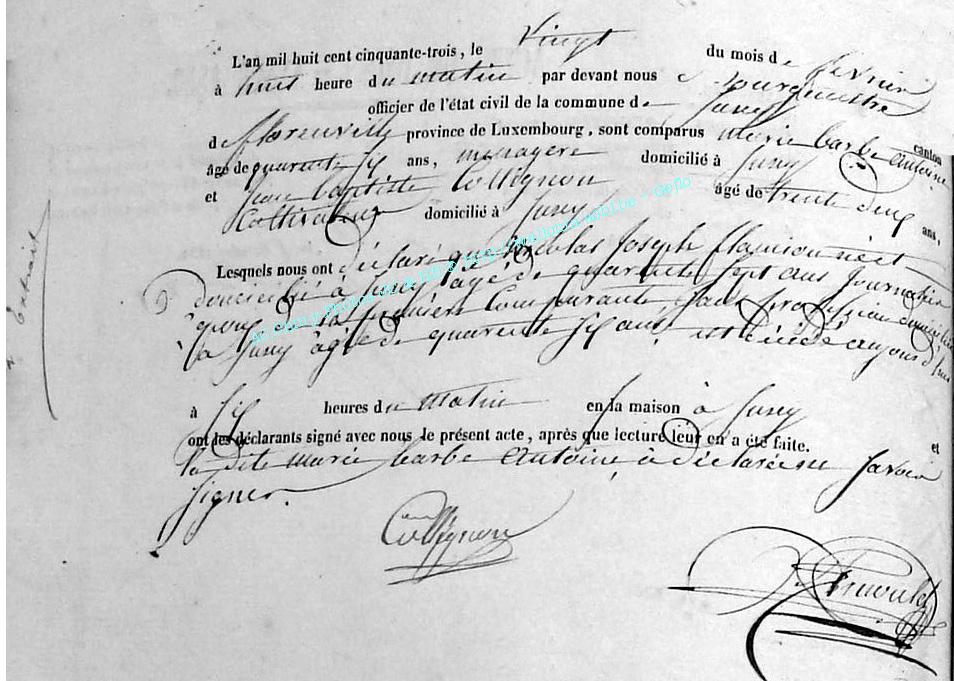 L'an mil huit cent cinquante-trois, le vingt du mois de fevrier
à huit heure du matin par devant nous Bourguestre
officier de l'état civil de la commune de Jusey canton
de florenville province de Luxembourg, sont comparus Marie barbe antoine
âgé de quarente six ans, menagere domicilié à Jusey
et jean baptiste Collignon âgé de trente deux ans,
Coltivateur domicilié à Jusey
Lesquels nous ont déclaré que Nicolas Joseph
domicilié à Jusey agé de quarente sept ans Journalier
époux de la premiére Comparante sans profession domicilié
à Jusey âgée de quarente six ans, est décédé aujourd'hui
à six heures du matin en la maison à Jusey
ont les déclarants signé avec nous le présent acte, après que lecture leur en a été faite. et
la dite marie barbe antoine à déclaré ne savoir
signer.
Collignon
extrait